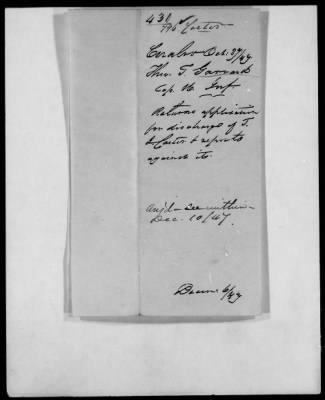 438
Cerralvo Oct. 27/47
Theo. T. Garrard
Cap. 16 Inf
Returns application
for discharge of T.
Carter & reports
against it.
Ans'd - see within -
Dec. 10/47.
Decem. 6/47